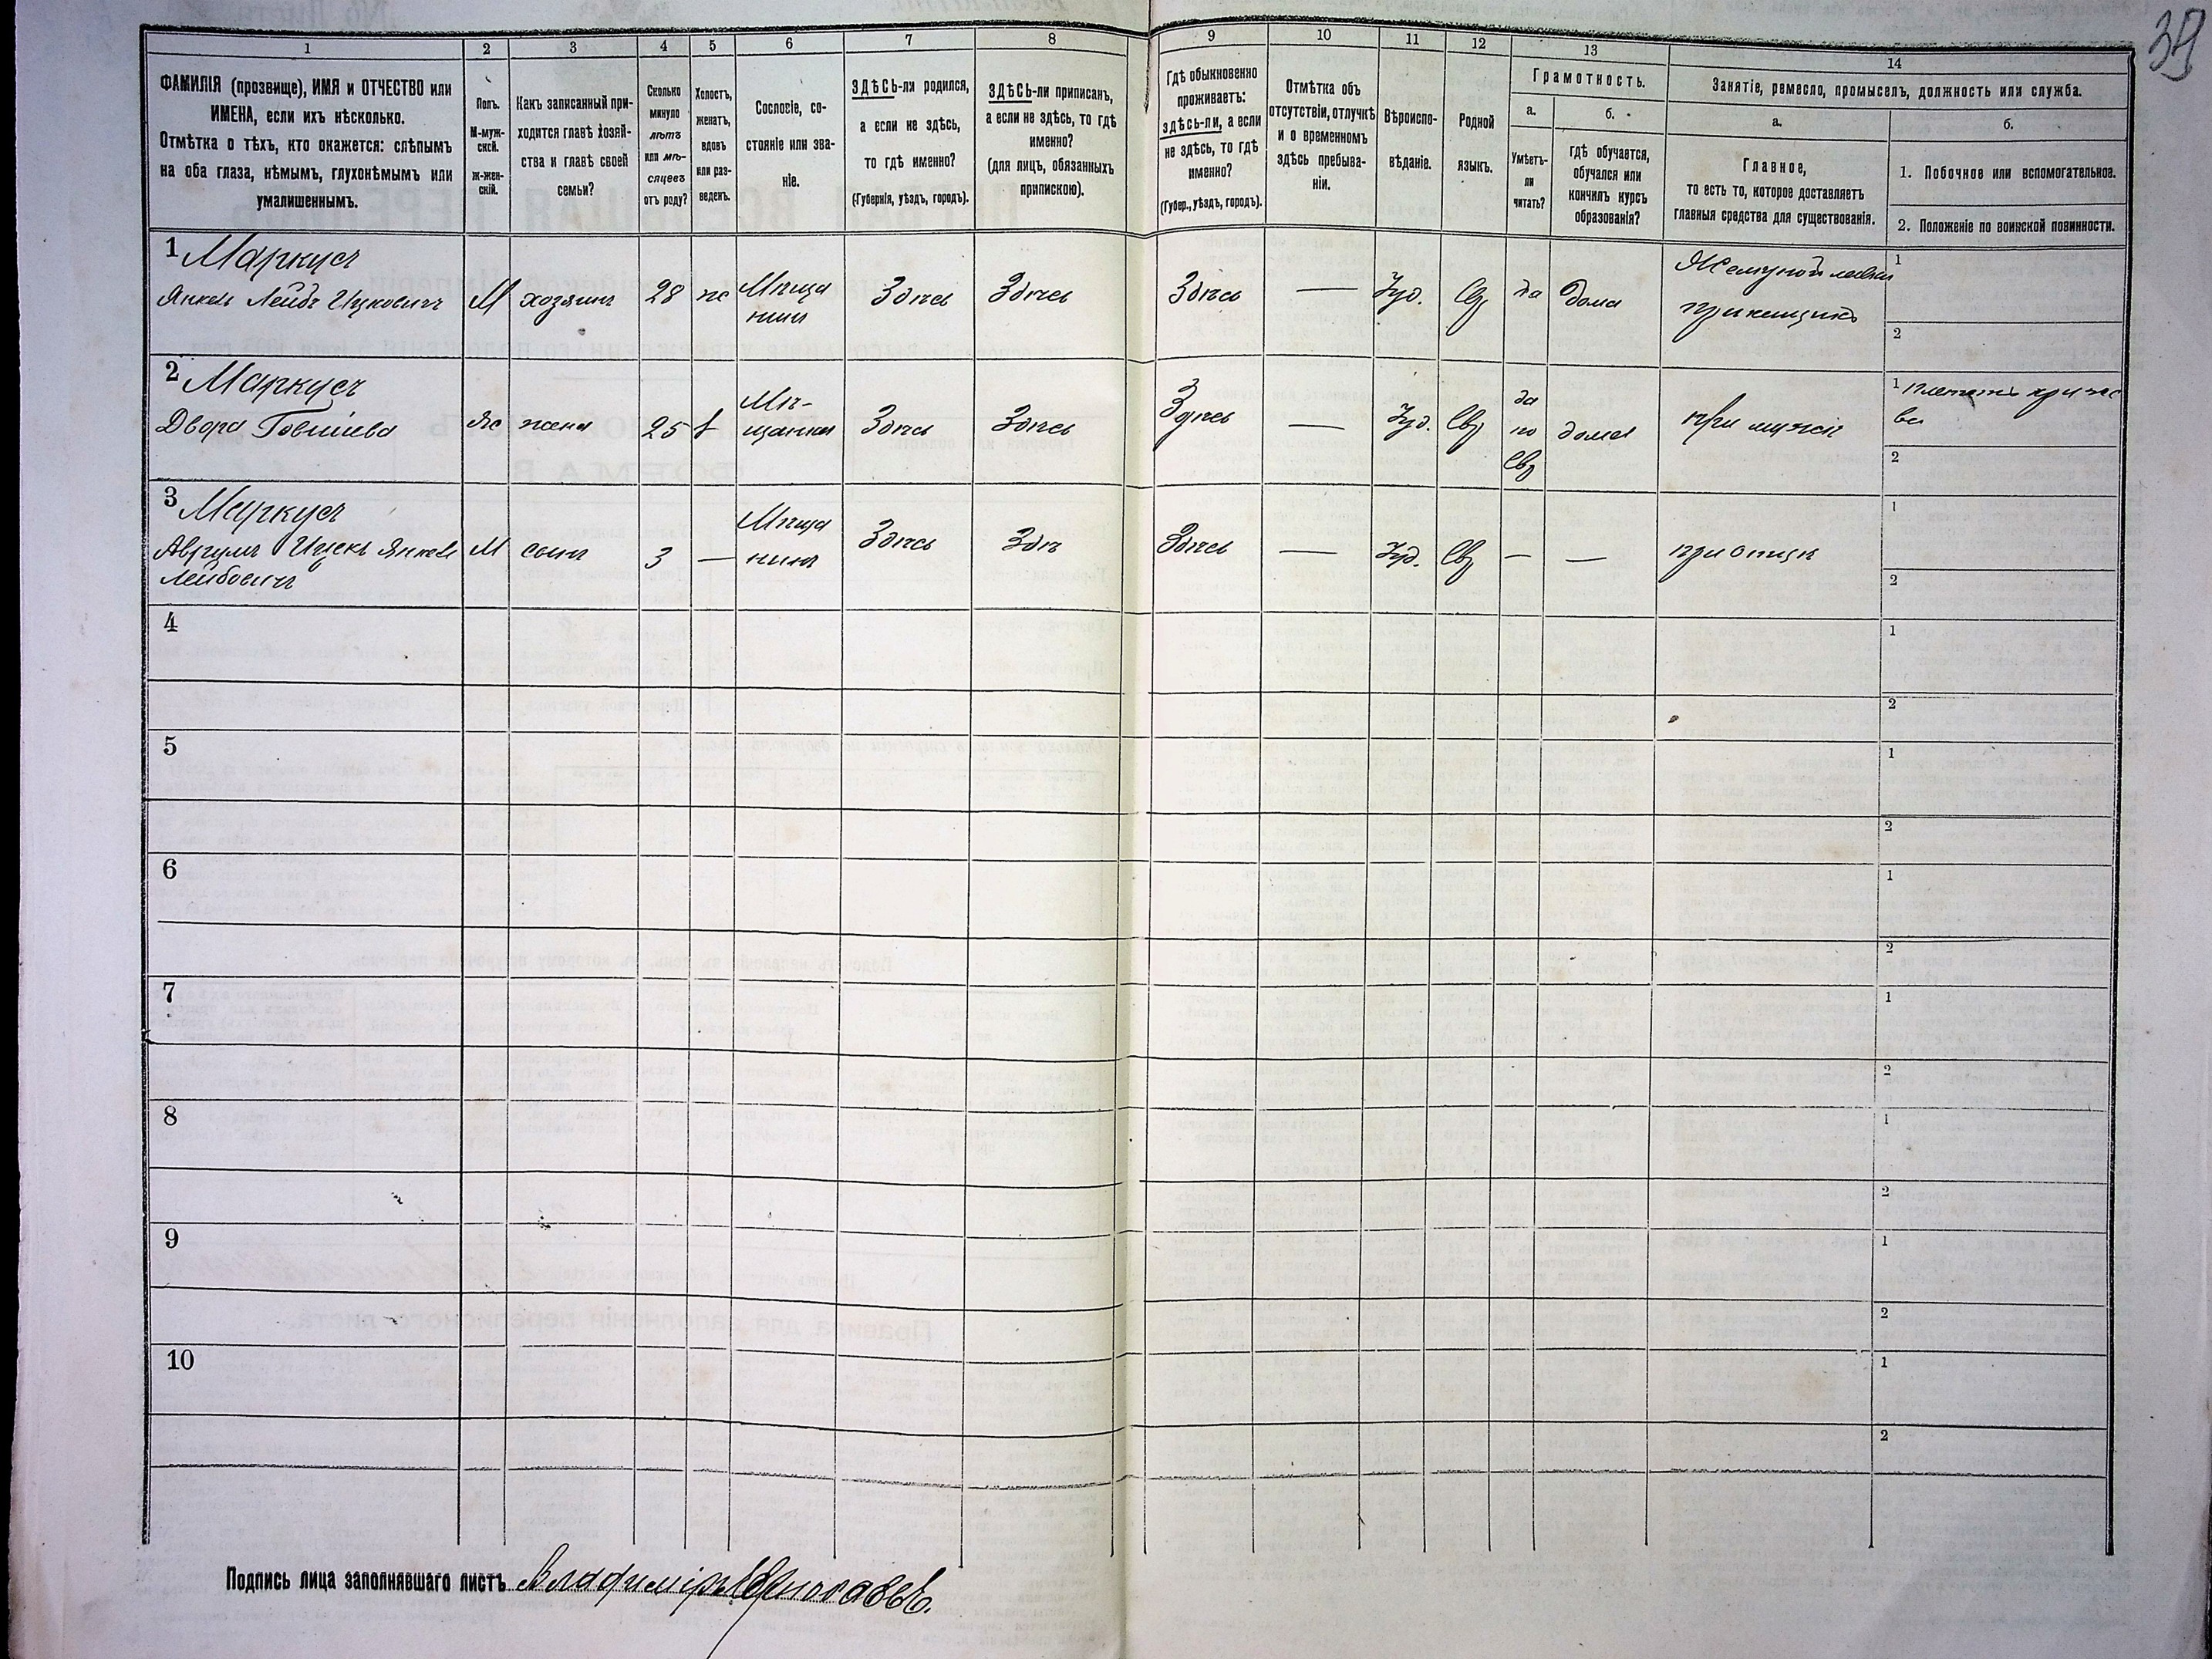 39
1 2 3 4 5 6 7 8 9 10 11 12 13 14
ФАМИЛІЯ (прозвище), ИМЯ и ОТЧЕСТВО или
ИМЕНА, если ихъ нѣсколько.
Отмѣтка о тѣхъ, кто окажется: слѣпымъ
на оба глаза, нѣмымъ, глухонѣмымъ или
умалишеннымъ.
Полъ.
М-муж-
ской.
ж-жен-
скій.
Какъ записанный при-
ходится главѣ хозяй-
ства и главѣ своей
семьи?
Сколько
минуло
лѣтъ
или мѣ-
сяцевъ
отъ роду?
Холостъ,
женатъ,
вдовъ
или раз-
веденъ.
Сословіе, со-
стояніе или зва-
ніе.
ЗДѢСЬ-ли родился,
а если не здѣсь,
то гдѣ именно?
(Губернія, уѣздъ, городъ).
ЗДѢСЬ-ли приписанъ,
а если не здѣсь, то гдѣ
именно?
(для лицъ, обязанныхъ
припискою).
Гдѣ обыкновенно
проживаетъ:
здѣсь-ли, а если
не здѣсь, то гдѣ
именно?
(Губер., уѣздъ, городъ).
Отмѣтка объ
отсутствіи, отлучкѣ
и о временномъ
здѣсь пребыва-
ніи.
Вѣроиспо-
вѣданіе.
Родной
языкъ.
Грамотность.
а.
Умѣетъ-
ли
читать?
б.
гдѣ обучается,
обучался или
кончилъ курсъ
образованія?
Занятіе, ремесло, промыселъ, должность или служба.
а.
Главное,
то есть то, которое доставляетъ
главныя средства для существованія.
б.
1. Побочное или вспомогательное.
2. Положеніе по воинской повинности.
1 Маркусъ
Янкель Лейбъ Ицковичъ М хозяинъ 28 ж Мѣща
нинъ Здѣсь Здѣсь Здѣсь — Іуд. Евр да дома
прикащикъ
1
2
2 Маркусъ
Двора Товшіева ж жена 25 Мѣ-
щанка Здѣсь Здѣсь Здѣсь — Іуд. Евр да
по
Евр дома при мужѣ
1
2
3 Маркусъ
Аврумъ Ицекъ Янкель
Лейбовичъ М сынъ 3 — Мѣща
нинъ Здѣсь Здѣ Здѣсь — Іуд. Евр — — при отцѣ
1
2
4
1
2
5
1
2
6
1
2
7
1
2
8
1
2
9
1
2
10
1
2
Подпись лица заполнявшаго листъ Владиміръ